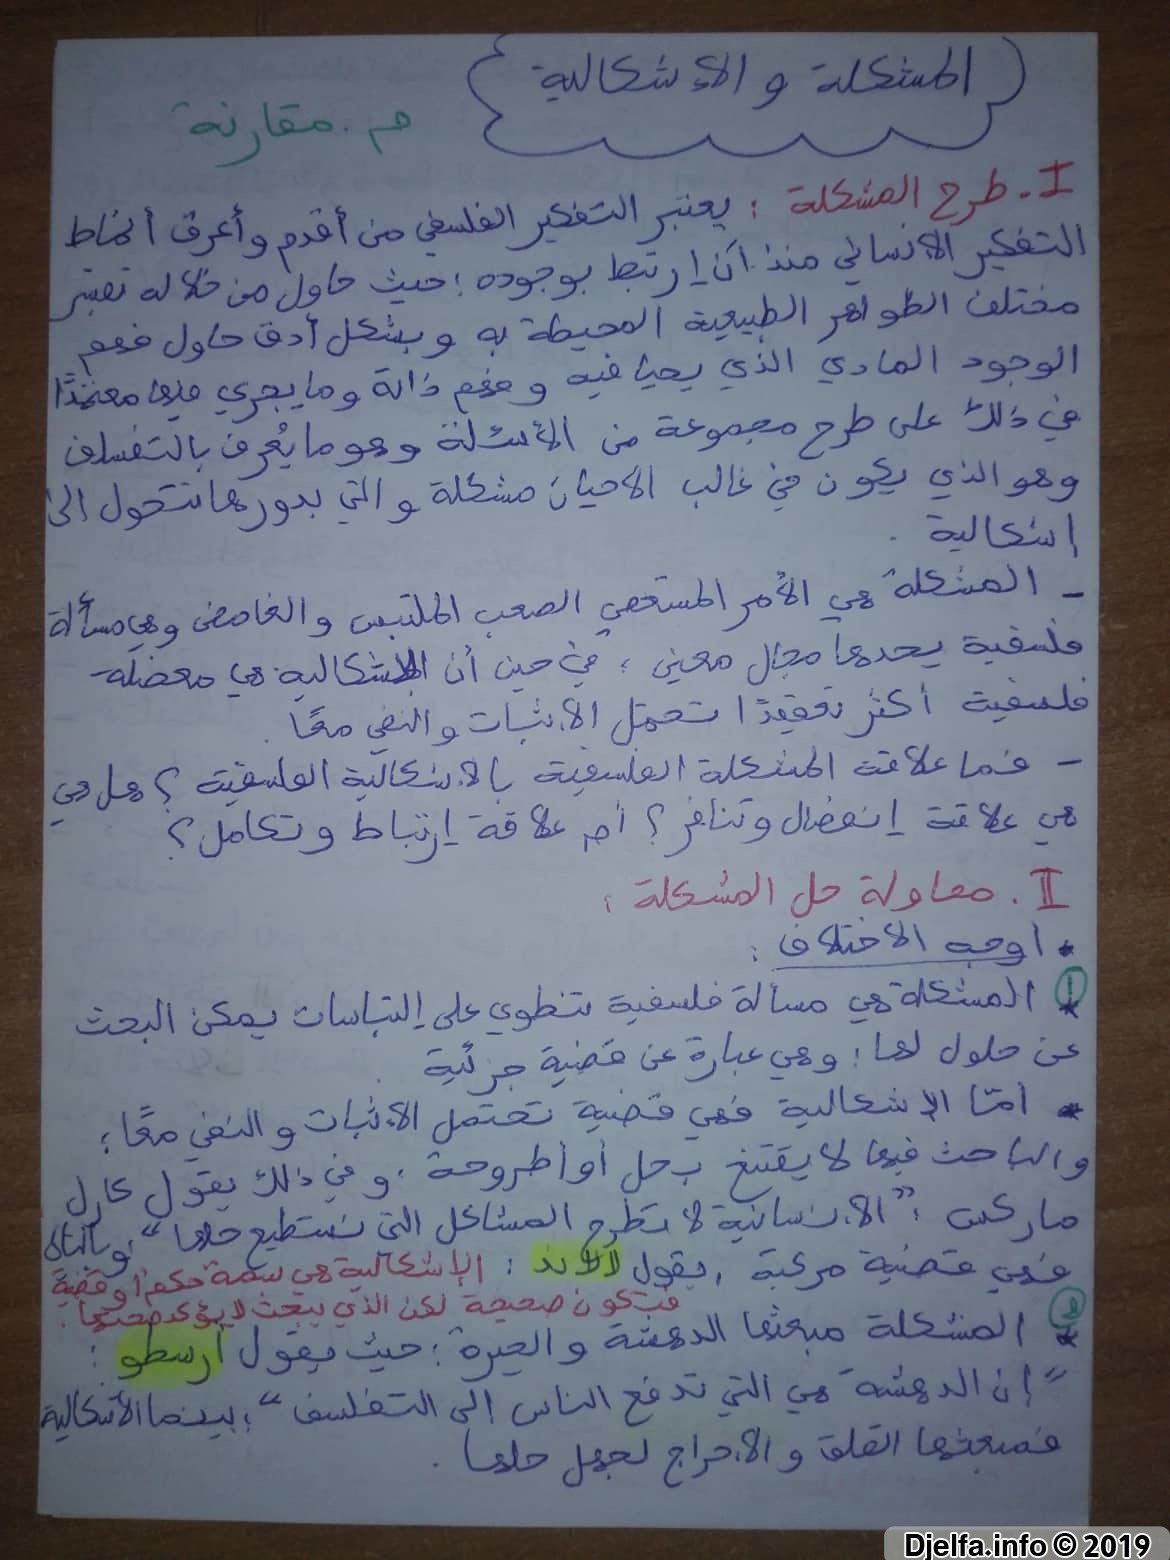 المشكلة و الإشكالية
م. مقارنة
I. طرح المشكلة : يعتبر التفكير الفلسفي من أقدم و أعرق أنماط
التفكير الانساني منذ أن إرتبط بوجوده ؛ حيث حاول من خلاله تفسير
مختلف الظواهر الطبيعية المحيطة به و بشكل أدق حاول فهم
الوجود المادي الذي يحيا فيه و فهم ذاته وما يجري فيها معتمدًا
في ذلك على طرح مجموعة من الأسئلة وهو ما يُعرف بالتفلسف
وهو الذي يكون في غالب الاحيان مشكلة و التي بدورها تتحول الى
إشكالية .
- المشكلة هي الأمر المستعصي الصعب الملتبس و الغامض وهي مسألة
فلسفية يحدها مجال معين ؛ في حين أن الإشكالية هي معضلة
فلسفية أكثر تعقيدًا تحتمل الاثبات و النفي معًا .
- فما علاقة المشكلة الفلسفية بالاشكالية الفلسفية ؟ هل هي
هي علاقة إنفصال و تنافر ؟ أم علاقة إرتباط و تكامل ؟
II. محاولة حل المشكلة :
* أوجه الاختلاف :
1 * المشكلة هي مسألة فلسفية تنطوي على إلتباسات يمكن البحث
عن حلول لها ؛ وهي عبارة عن قضية جزئية .
* أمّا الإشكالية فهي قضية تحتمل الاثبات و النفي معًا ؛
و الباحث فيها لا يقتنع بحل أو أطروحة ، و في ذلك يقول كارل
ماركس : "الانسانية لا تطرح المشاكل التي تستطيع حلها" ، وبالتالي
فهي قضية مركبة ، يقول لالاند : الإشكالية هي سمة حكم أو قضية
قد تكون صحيحة لكن الذي يبحث لا يؤكد صحتها .
2 * المشكلة مبعثها الدهشة و الحيرة ؛ حيث يقول أرسطو :
"إن الدهشة هي التي تدفع الناس إلى التفلسف" ؛ بينما الاشكالية
فمبعثها القلق و الاحراج لجهل حلها .
Djelfa.info © 2019